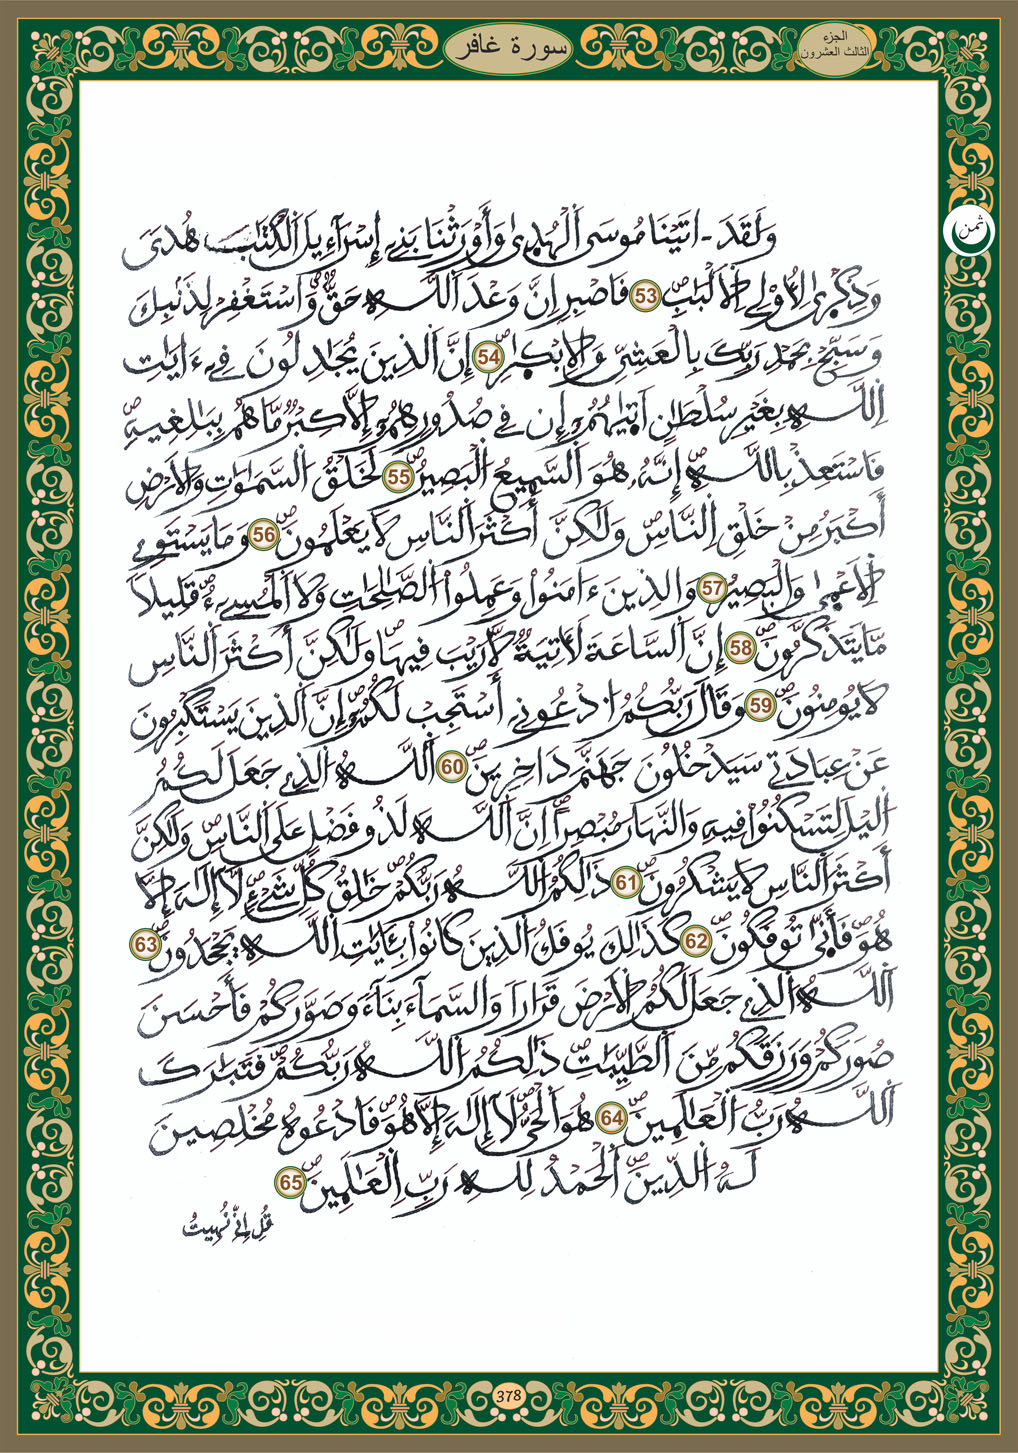 سورة غافر
الجزء
الثالث العشرون
ثمن
وَلَقَدَ اتَيْنَا مُوسَى اَلْهُدۭىٰ وَأَوْرَثْنَا بَنِےٓ إِسْرَآءِيلَ اَلْكِتَٰبَ هُدىَ
وَذِكْرۭىٰ لِأُوْلِے اِلَالْبَٰبِۖ 53 فَاصْبِرِ اِنَّ وَعْدَ اَللَّهِ حَقّٞۖ وَاسْتَغْفِرْ لِذَنۢبِكَ
وَسَبِّحْ بِحَمْدِ رَبِّكَ بِالْعَشِيِّ وَالِابْكٰ۪رِۖ 54 إِنَّ اَلذِينَ يُجَٰدِلُونَ فِےٓ ءَايَٰتِ
اِللَّهِ بِغَيْرِ سُلْطَٰنٍ اَت۪يٰهُمُۥٓ إِن فِے صُدُورِهِمُۥٓ إِلَّا كِبْرٞ مَّا هُم بِبَٰلِغِيهِۖ
فَاسْتَعِذْ بِاللَّهِۖ إِنَّهُۥ هُوَ اَلسَّمِيعُ اُلْبَصِيرُۖ 55 لَخَلْقُ اُلسَّمَٰوَٰتِ وَالَارْضِ
أَكْبَرُ مِنْ خَلْقِ اِلنَّاسِۖ وَلَٰكِنَّ أَكْثَرَ اَلنَّاسِ لَا يَعْلَمُونَۖ 56 وَمَا يَسْتَوِے
اِلَاعْم۪يٰ وَالْبَصِيرُۖ 57 وَالذِينَ ءَامَنُواْ وَعَمِلُواْ اُلصَّٰلِحَٰتِ وَلَا اَلْمُسِےٓءُۖ قَلِيلاَ
مَّا يَتَذَكَّرُونَۖ 58 إِنَّ اَلسَّاعَةَ لَأٓتِيَةٞ لَّا رَيْبَ فِيهَاۖ وَلَٰكِنَّ أَكْثَرَ اَلنَّاسِ
لَا يُومِنُونَۖ 59 وَقَالَ رَبُّكُمُ اُدْعُونِےٓ أَسْتَجِبْ لَكُمُۥٓۖ إِنَّ اَلذِينَ يَسْتَكْبِرُونَ
عَنْ عِبَادَتِے سَيَدْخُلُونَ جَهَنَّمَ دَاخِرِينَۖ 60 اَللَّهُ اُلذِے جَعَلَ لَكُمُ
اُليْلَ لِتَسْكُنُواْ فِيهِ وَالنَّهَارَ مُبْصِراًۖ اِنَّ اَللَّهَ لَذُو فَضْلٍ عَلَى اَلنَّاسِۖ وَلَٰكِنَّ
أَكْثَرَ اَلنَّاسِ لَا يَشْكُرُونَۖ 61 ذَٰلِكُمُ اُللَّهُ رَبُّكُمْۖ خَٰلِقُ كُلِّ شَےْءٖۖ لَّآ إِلَٰهَ إِلَّا
هُوَۖ فَأَنّ۪يٰ تُوفَكُونَۖ 62 كَذَٰلِكَ يُوفَكُ اُلذِينَ كَانُواْ بِـَٔايَٰتِ اِللَّهِ يَجْحَدُونَۖ 63
اَللَّهُ اُلذِے جَعَلَ لَكُمُ اُلَارْضَ قَرَاراٗ وَالسَّمَآءَ بِنَآءٗ وَصَوَّرَكُمْ فَأَحْسَنَ
صُوَرَكُمْ وَرَزَقَكُم مِّنَ اَلطَّيِّبَٰتِۖ ذَٰلِكُمُ اُللَّهُ رَبُّكُمْۖ فَتَبَٰرَكَ
اَللَّهُ رَبُّ اُلْعَٰلَمِينَۖ 64 هُوَ اَلْحَيُّۖ لَآ إِلَٰهَ إِلَّا هُوَۖ فَادْعُوهُ مُخْلِصِينَ
لَهُ اُلدِّينَۖ اَلْحَمْدُ لِلهِ رَبِّ اِلْعَٰلَمِينَۖ 65
قُلِ اِنِّے نُهِيتُ
378